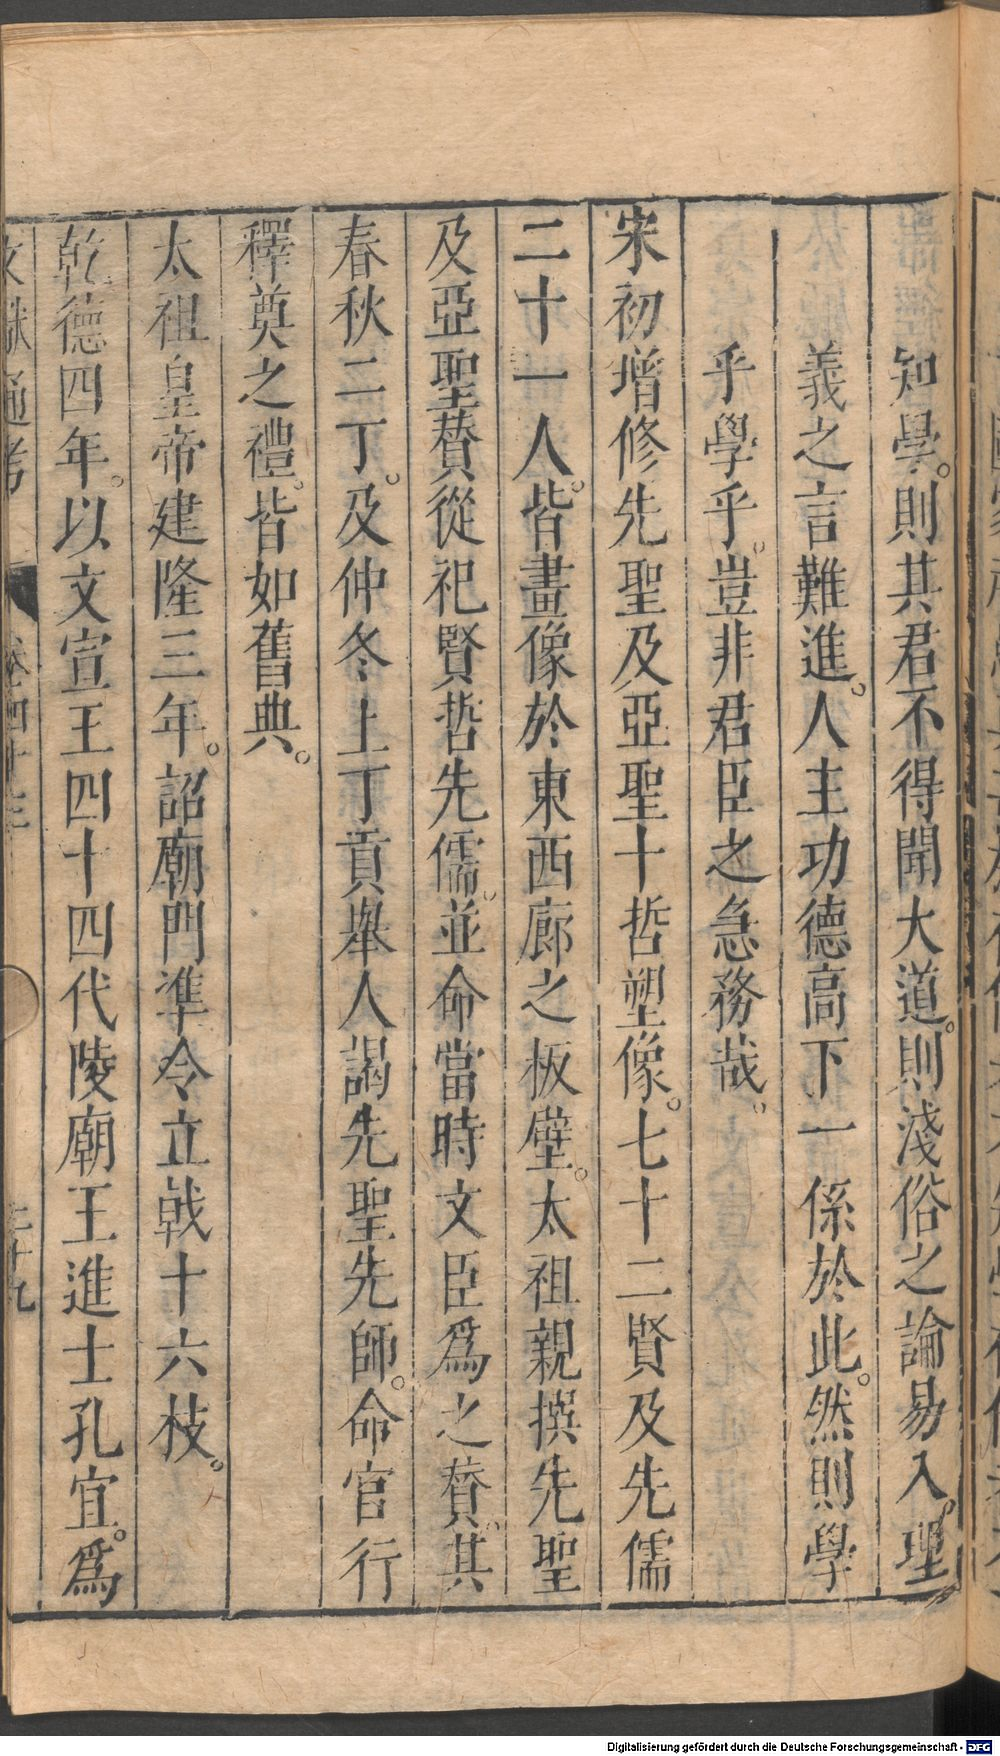 知學。則其君不得聞大道。則淺俗之論易入。理
義之言難進。人主功德高下一係於此。然則學
乎學乎。豈非君臣之急務哉。
宋初增修先聖及亞聖十哲塑像。七十二賢及先儒
二十一人。皆畫像於東西廊之板壁。太祖親撰先聖
及亞聖贊從祀賢哲先儒。並命當時文臣爲之贊。其
春秋二丁。及仲冬上丁貢舉人謁先聖先師。命官行
釋奠之禮。皆如舊典。
太祖皇帝建隆三年。詔廟門準令立戟十六枝。
乾德四年。以文宣王四十四代陵廟王進士孔宜。爲
文獻通考 卷四十三 二十九
Digitalisierung gefördert durch die Deutsche Forschungsgemeinschaft - DFG